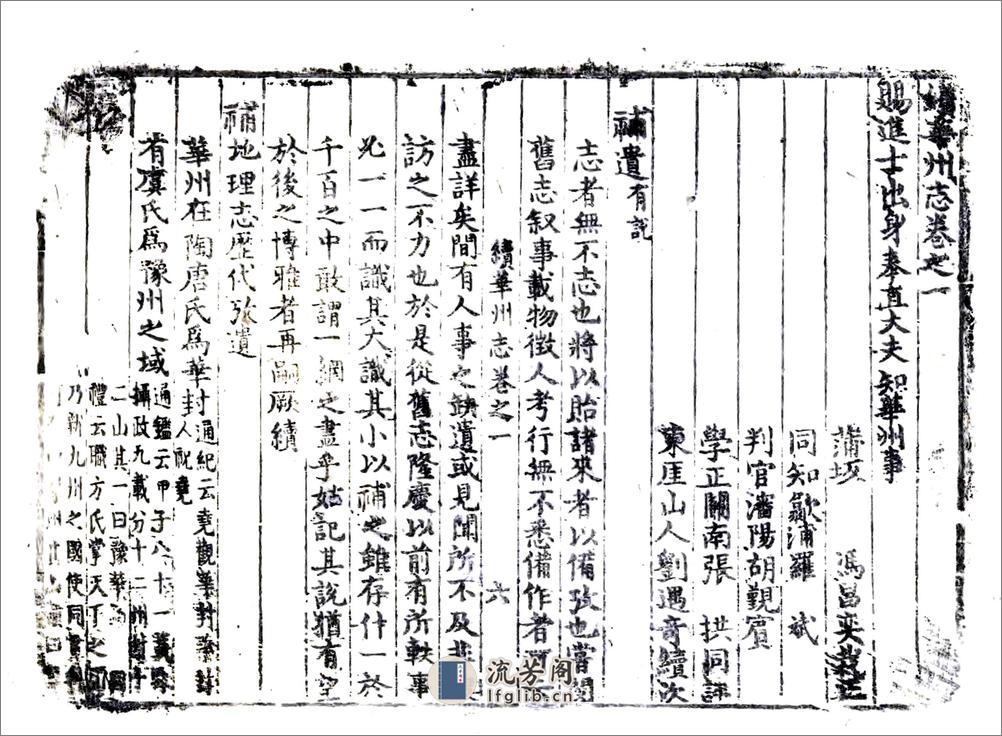 續華州志卷之一
賜進士出身奉直大夫知華州事
蒲坂 馮昌奕
同知歙浦羅 斌
判官瀋陽胡觀賓
學正關南張 拱同評
東厓山人劉遇奇續次
補遺有説
志者無不志也將以貽諸來者以備攷也嘗閱
舊志叙事載物徵人考行無不悉備作者
續華州志卷之一 六
盡詳矣間有人事之缺遺或見聞所不及非
訪之不力也於是從舊志隆慶以前有所軼事
必一一而識其大識其小以補之雖存什一於
千百之中敢謂一網之盡乎姑記其說猶有望
於後之博雅者再嗣厥續
補地理志歷代攷遺
華州在陶唐氏爲華封通紀云堯觀華封華封
人祝堯
有虞氏爲豫州之域通鑑云甲子八十一載
攝政九載分十二州封十
二山其一曰豫華
禮云職方氏掌天下之
乃辨九州之國使同貫
流芳阁
lfglib.cn